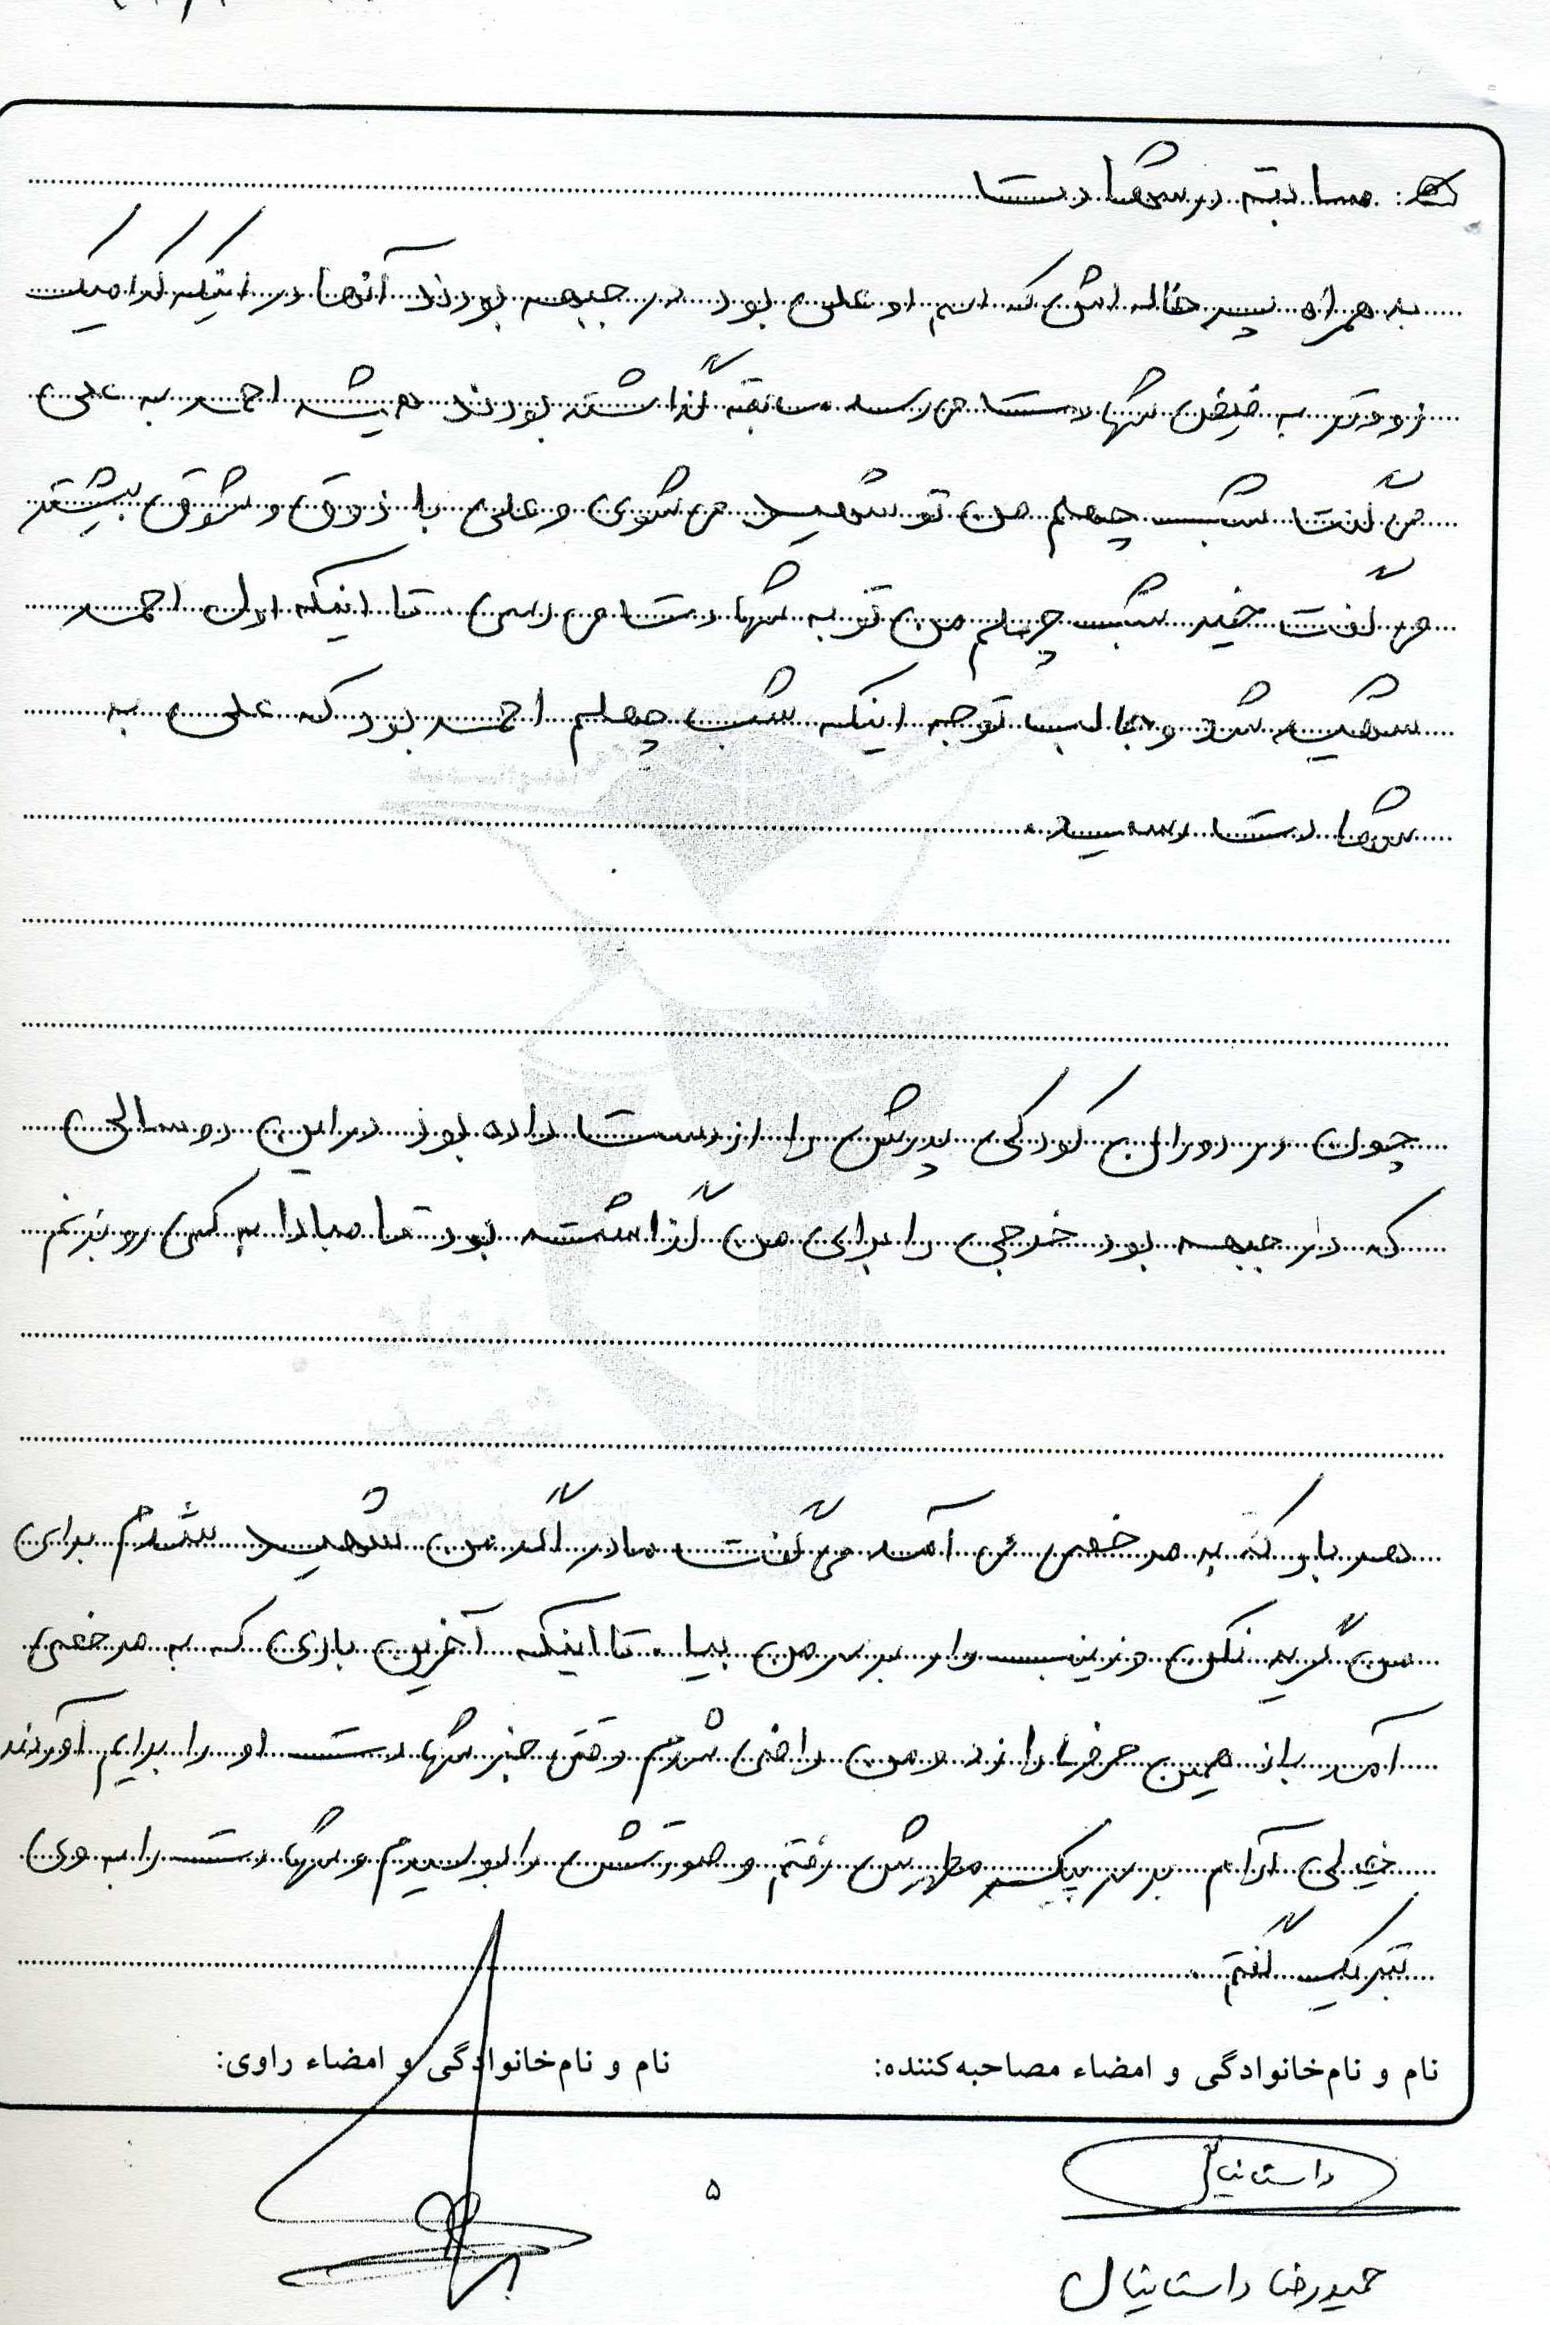 مسابقه در شهادت
به همراه پسر خاله اش که اسم او علی بود در جبهه بودند آنها در اینکه کدامیک
زودتر به فیض شهادت می رسد مسابقه گذاشته بودند همیشه احمد به علی
می گفت شب چهلم من تو شهید می شوی و علی با ذوق و شوق بیشتر
می گفت خیر شب چهلم من تو به شهادت می رسی تا اینکه اول احمد
شهید شد و جالب توجه اینکه شب چهلم احمد بود که علی به
شهادت رسید.
چون در دوران کودکی پدرش را از دست داده بود در این دو سالی
که در جبهه بود خرجی را برای من گذاشته بود تا مبادا به کسی رو بزنم
هر بار که به مرخصی می آمد می گفت مادر اگر من شهید شدم برای
من گریه نکن و زینب وار بر سر من بیا. تا اینکه آخرین باری که به مرخصی
آمد باز همین حرفها را زد و من راضی شدم وقتی خبر شهادت او را برایم آوردند
خیلی آرام بر سر پیکر مطهرش رفتم و صورتش را بوسیدم و شهادت را به وی
تبریک گفتم.
نام و نام‌خانوادگی و امضاء مصاحبه‌کننده: نام و نام‌خانوادگی و امضاء راوی:
داستانیال
۵
حمیدرضا داستانیال